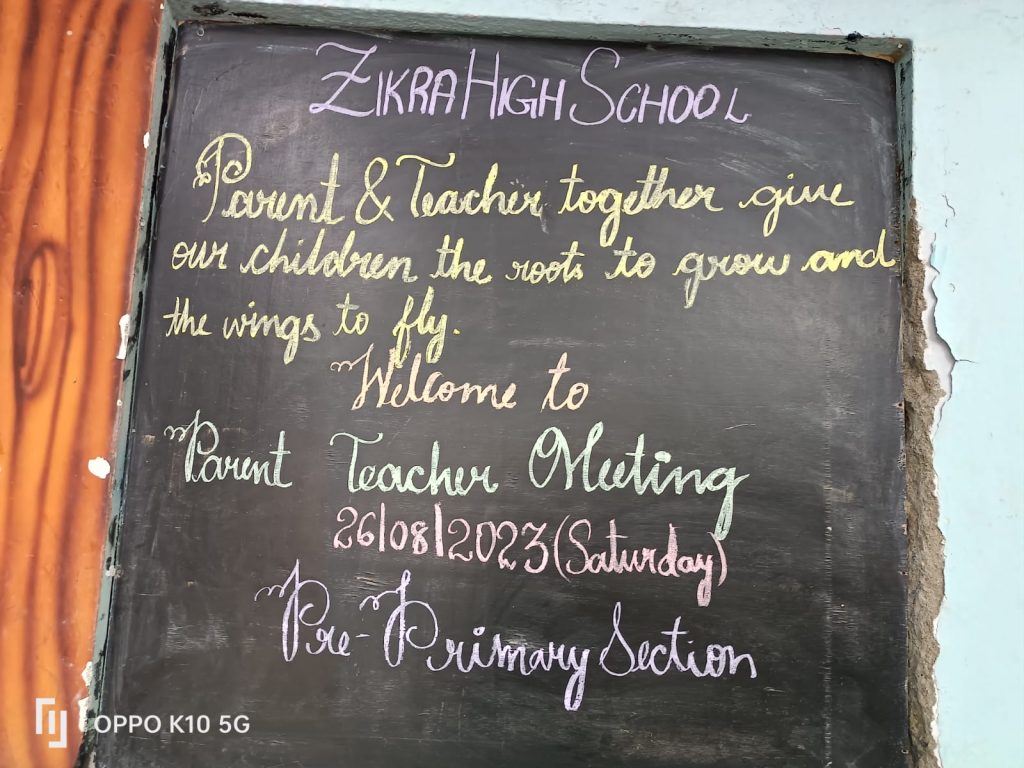 ZIKRA HIGH SCHOOL
Parent & Teacher together give
our children the roots to grow and
the wings to fly.
Welcome to
Parent Teacher Meeting
26/08/2023 (Saturday)
Pre-Primary Section
OPPO K10 5G